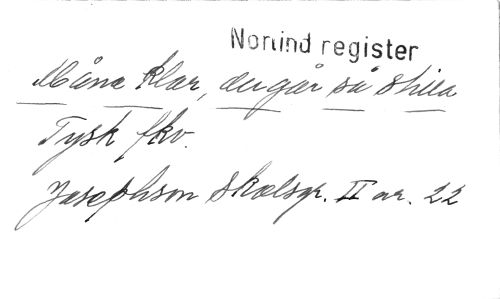 Norlind register
Måne klar, du går så stilla
Tysk fkv.
Josephson Skolsgr. II nr. 22